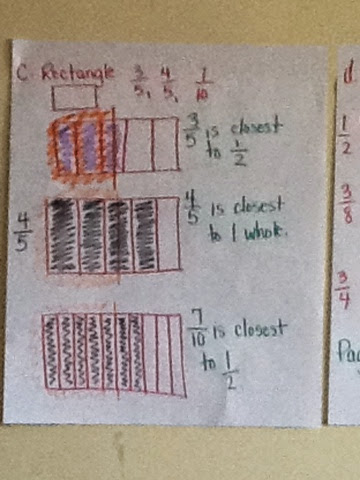 C. Rectangle 3/5, 4/5, 7/10
3/5 is closest
to 1/2
4/5
4/5 is closest
to 1 whole.
7/10 is closest
to 1/2
d
1/2
3/8
3/4